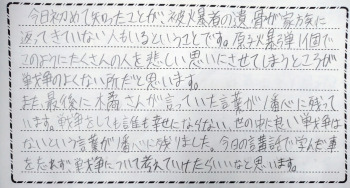 今日初めて知ったことが、被爆者の遺骨が家族に
返ってきていない人もいるということです。原子爆弾1個で
このようにたくさんの人を悲しい思いにさせてしまうところが
戦争のよくない所だと思います。
また、最後に水橋さんが言っていた言葉が1番心に残って
います。戦争をしても誰も幸せにならない、世の中に良い戦争は
ないという言葉が1番心に残りました。今日の講話で学んだ事
を忘れず、戦争について考えていけたらいいなと思います。